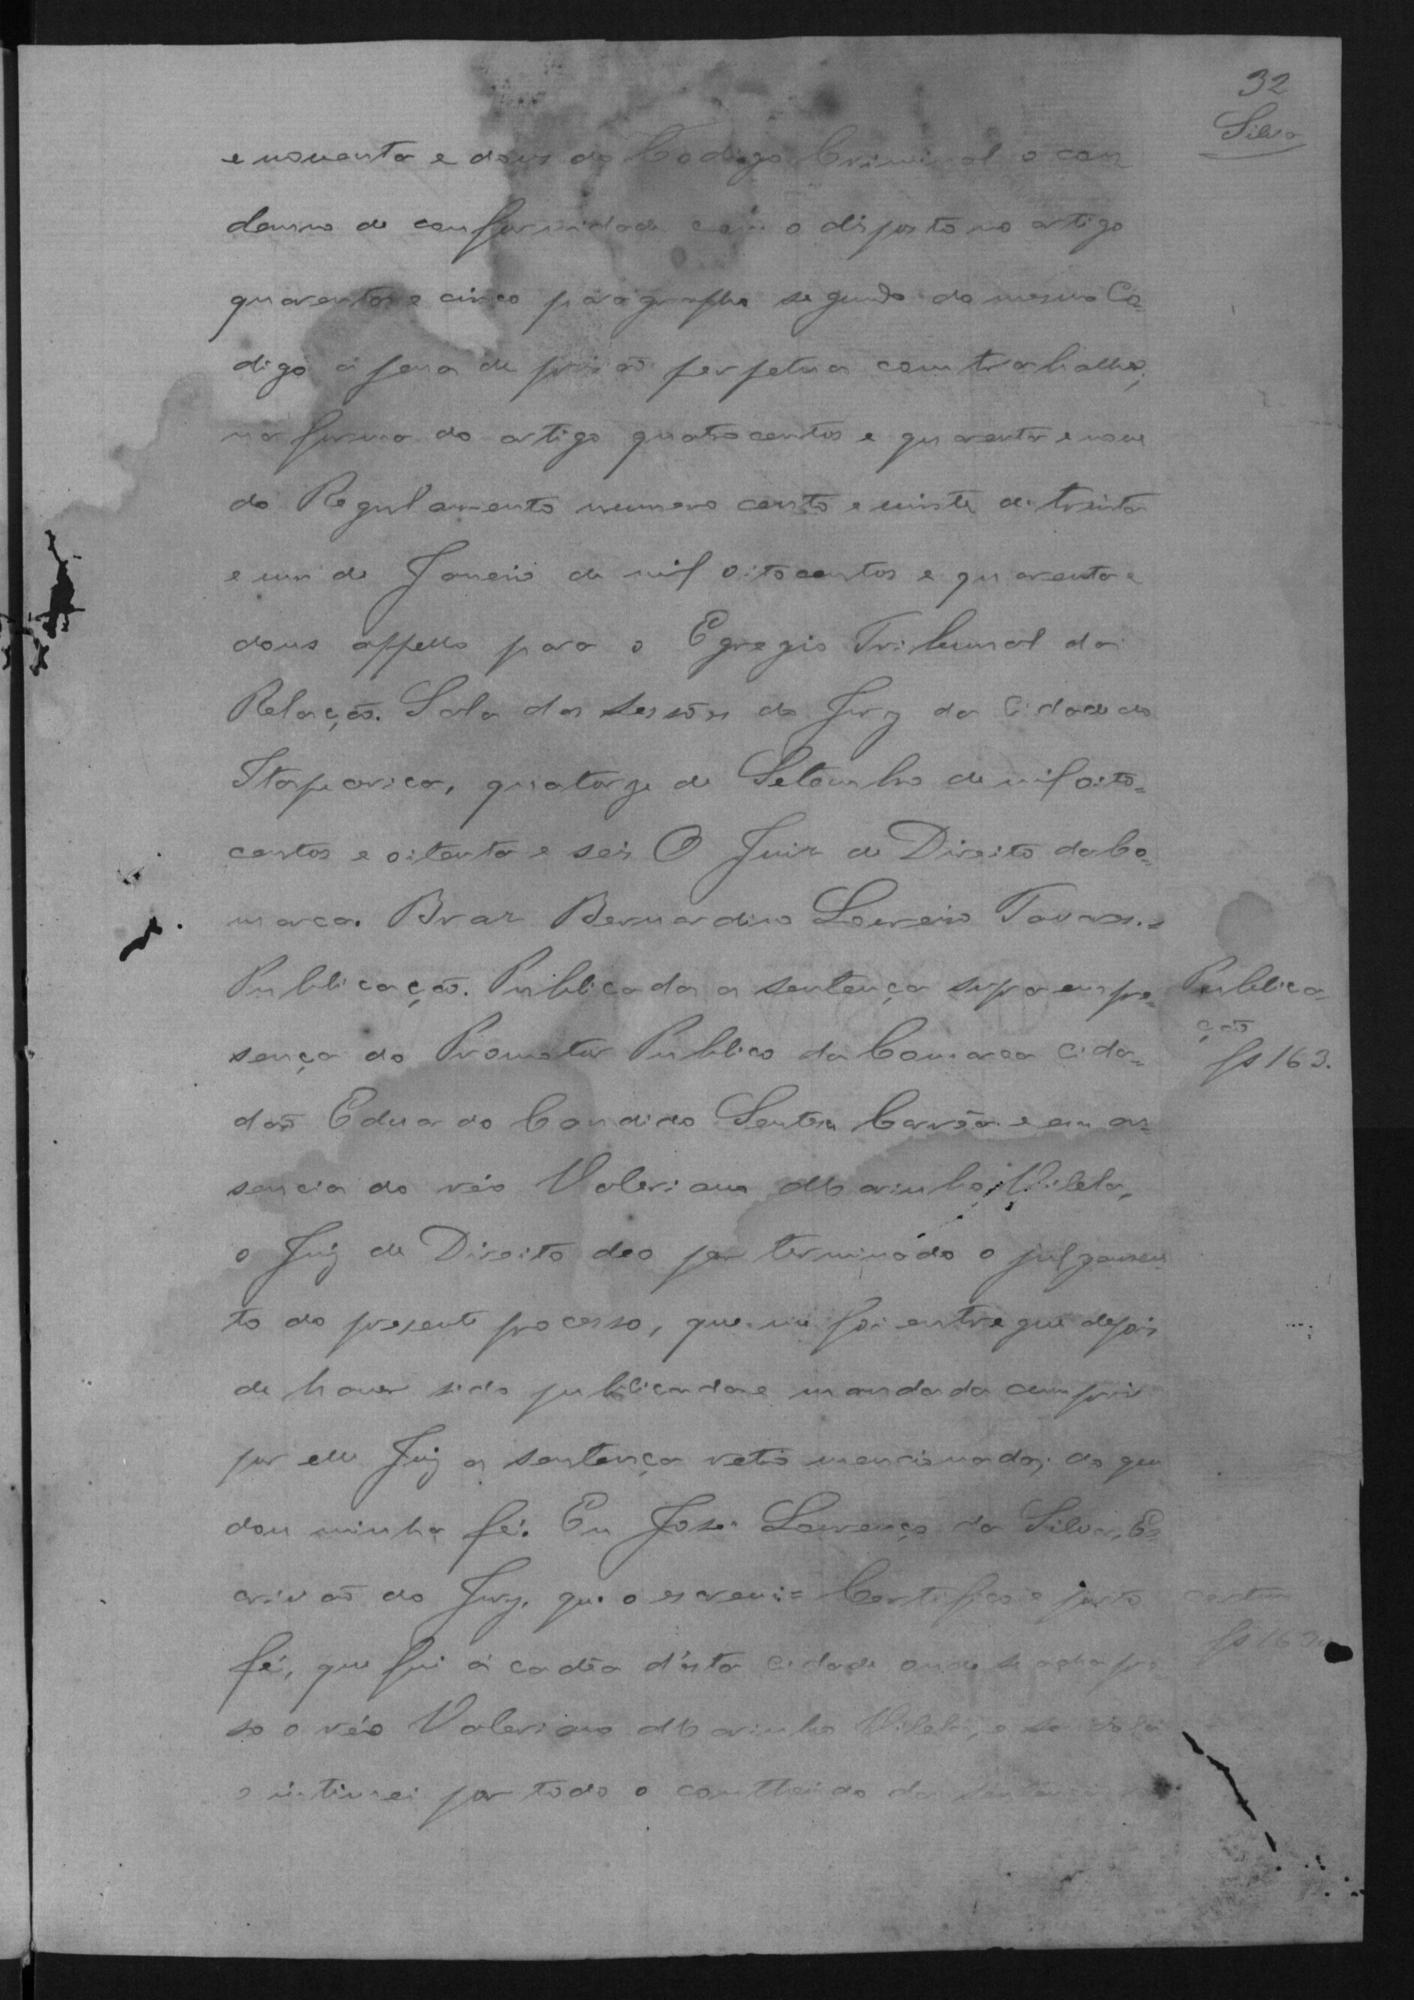 32
Silva
e noventa e dous do Codigo Criminal o con
demno de conformidade com o disposto no artigo
quarenta e cinco paragrapho segundo do mesmo Co=
digo á pena de prisão perpetua com trabalho,
na forma do artigo quatrocentos e quarenta e nove
do Regulamento numero cento e vinte de trinta
e um de Janeiro de mil oitocentos e quarenta e
dous appello para o Egregio Tribunal da
Relação. Sala das sessões do Jury da Cidade de
Itaparica, quatorze de Setembro de mil oito=
centos e oitenta e seis O Juiz de Direito da Co=
marca. Braz Bernardino Loureiro Tavares.=
Publicação. Publicada a sentença supra em pre=
sença do Promotor Publico da Comarca cida=
dão Eduardo Candido e em au=
sencia do réo Valeriano Marinho Vilela,
o Juiz de Direito deo por terminado o julgamen
to do presente processo, que me foi entregue depois
de haver sido publicada e mandada cumprir
por elle Juiz a sentença retro mencionada; do que
dou minha fé. Eu José Lourenço da Silva, Es
crivão do Jury, que o escrevi= Certifico e porto
fé, que fui á cadêa d'esta cidade onde se acha pre
so o réo Valeriano Marinho Vilela, e
o intimei por todo o contheúdo da sentença
Publica=
ção
fs 163.
fs 163